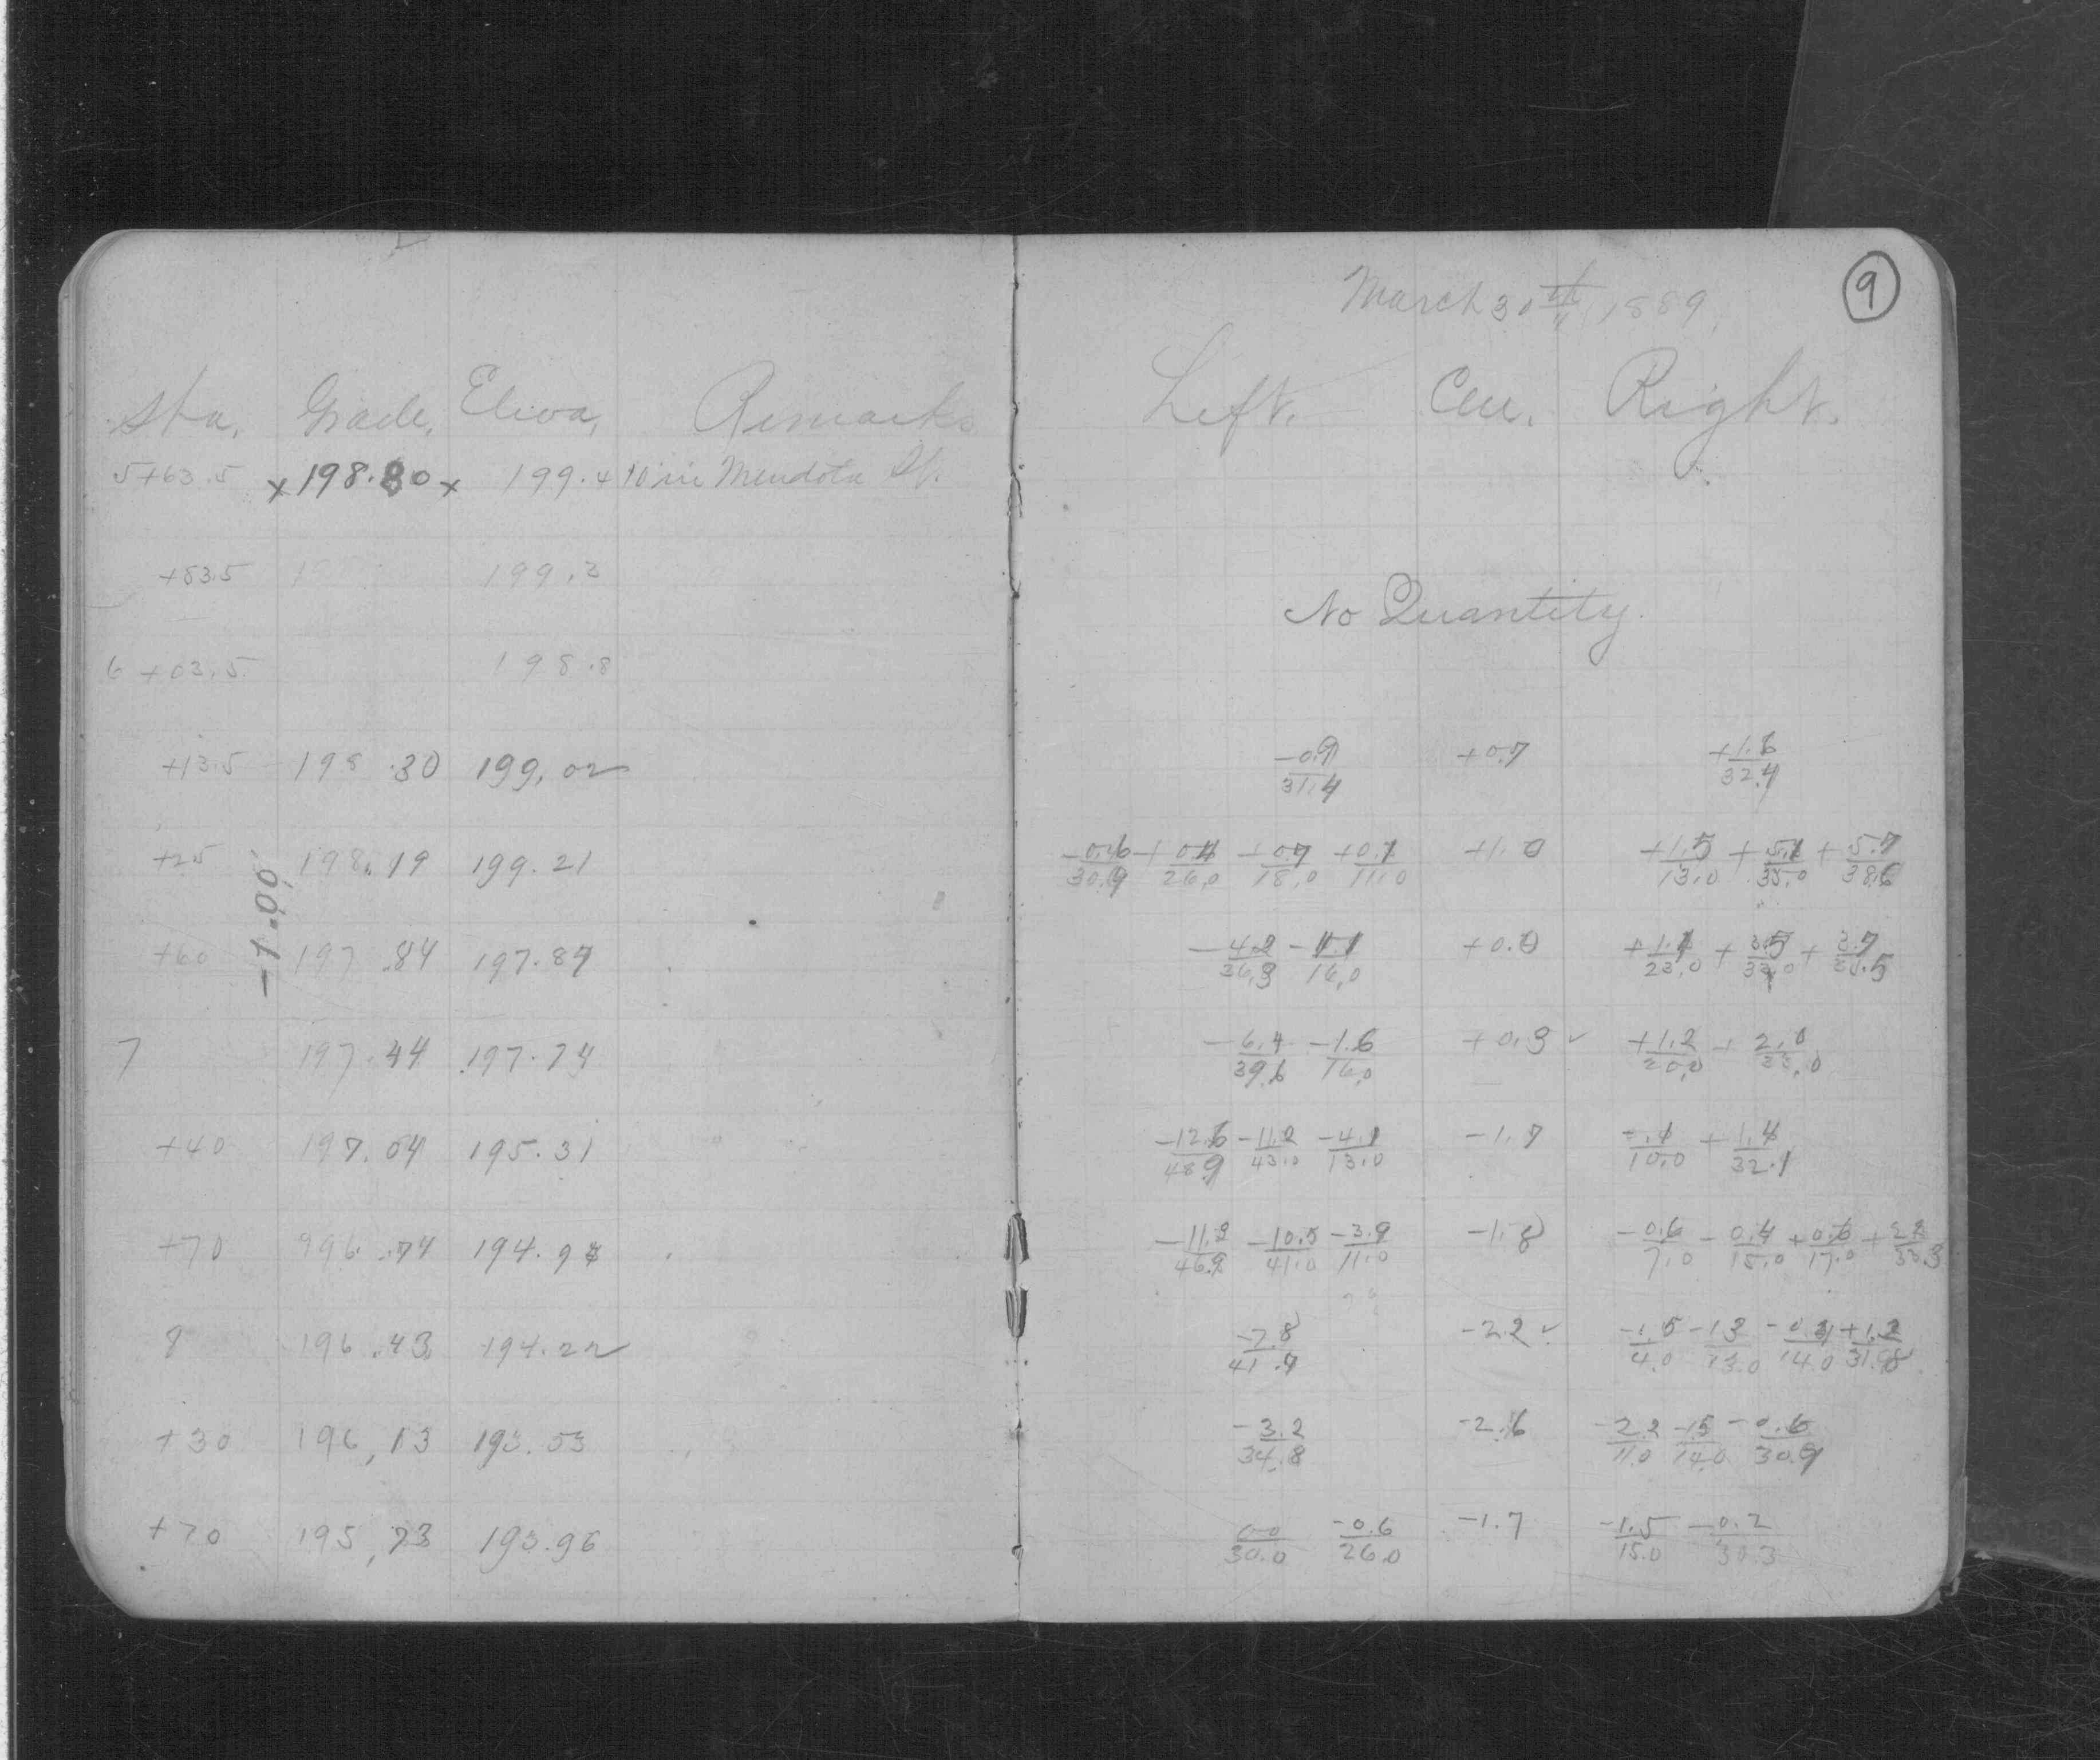 Sta. Grade, Eleva, Remarks
5+63.5 x 198.80 x 199.4 10 in Mendota St.
+83.5 199.3
6 +03.5 198.8
+13.5 198.30 199.02
+25 198.19 199.21
-1.00
+60 197.84 197.84
7 197.44 197.74
+40 197.04 195.31
+70 996.74 194.98
8 196.43 194.22
+30 196,13 193.53
+70 195,73 193.96
9
March 30th, 1889,
Left. Cen. Right.
No Quantity.
-0.9/31.4 +0.7 +1.6/32.4
-0.6/30.9 +0.4/26.0 +0.7/18.0 +0.1/11.0 +1.0 +1.5/13.0 +5.1/35.0 +5.7/38.6
-4.2/36.3 -1.1/16.0 +0.0 +1.1/23.0
-6.4/39.6 -1.6/16.0 +0.3 ✓ +1.2/20.0 + 2.0/33.0
-12.6/48.9 -11.2/43.0 -4.1/13.0 -1.7 -.1/10.0 +1.4/32.1
-11.2/46.9 -10.5/41.0 -3.9/11.0 -1.8 -0.6/7.0 -0.4/15.0 +0.6/17.0
-7.8/41.4 -2.2 ✓ -1.5/4.0 -1.3/13.0 +1.2/31.8
-3.2/34.8 -2.6 -2.2/11.0 -1.5/14.0 -0.6/30.9
0.0/30.0 -0.6/26.0 -1.7 -1.5/15.0 -0.2/30.3